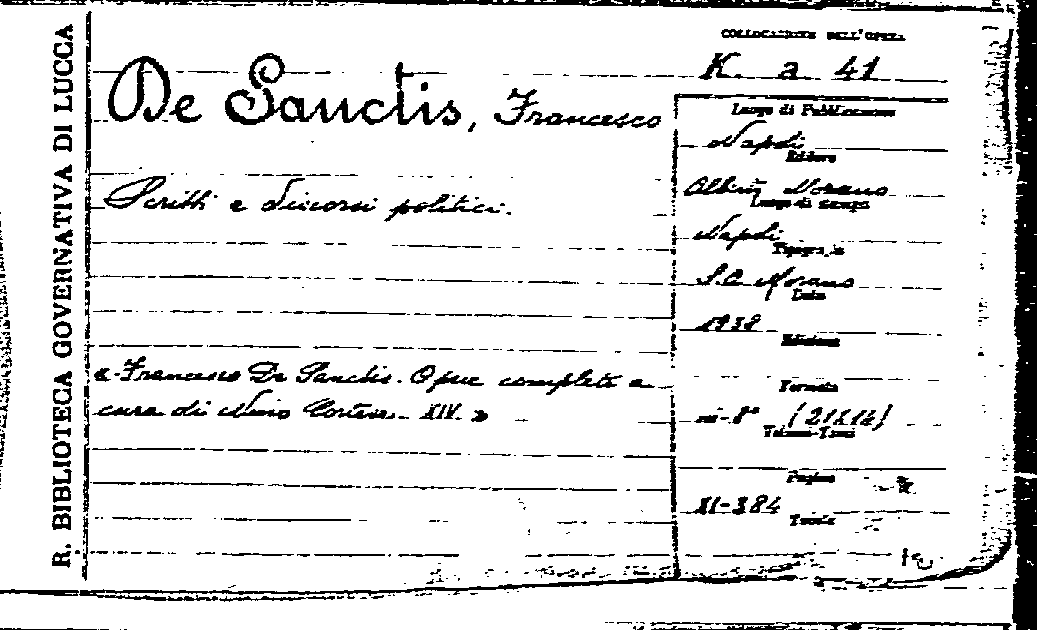 R. BIBLIOTECA GOVERNATIVA DI LUCCA
COLLOCAZIONE DELL'OPERA
K. a 41
De Sanctis, Francesco
Scritti e discorsi politici.
« Francesco De Sanctis. Opere complete a
cura di Nino Cortese. XIV. »
Luogo di Pubblicazione
Napoli
Editore
Alberto Morano
Luogo di stampa
Napoli
Tipografia
S.A. Morano
Data
1938
Edizione
Formato
in-8° (21x14)
Volumi-Tomi
Pagine
XI-384
Tavole